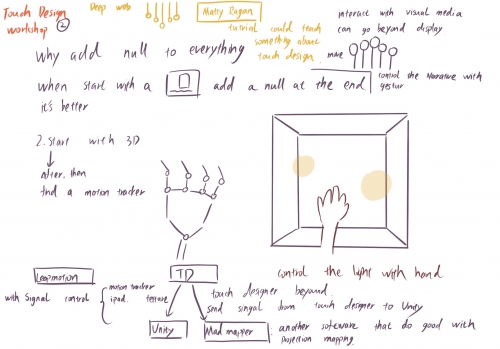 Touch Design
workshop ②
Deep web
Matty Ragan
tutorial could teach
something about
touch design.
interact with visual media
can go beyond display
more
Why add null to everything
when start with a
add a null at the end
it's better
control the Narrative with
gestur
2. Start with 3D
After, then
find a motion tracker
control the light with hand
Leapmotion
with signal control
motion tracker
ipad.
TD
touch designer beyond
send singal from touch designer to Unity
Unity
Mad mapper
: another software that do good with
projection mapping